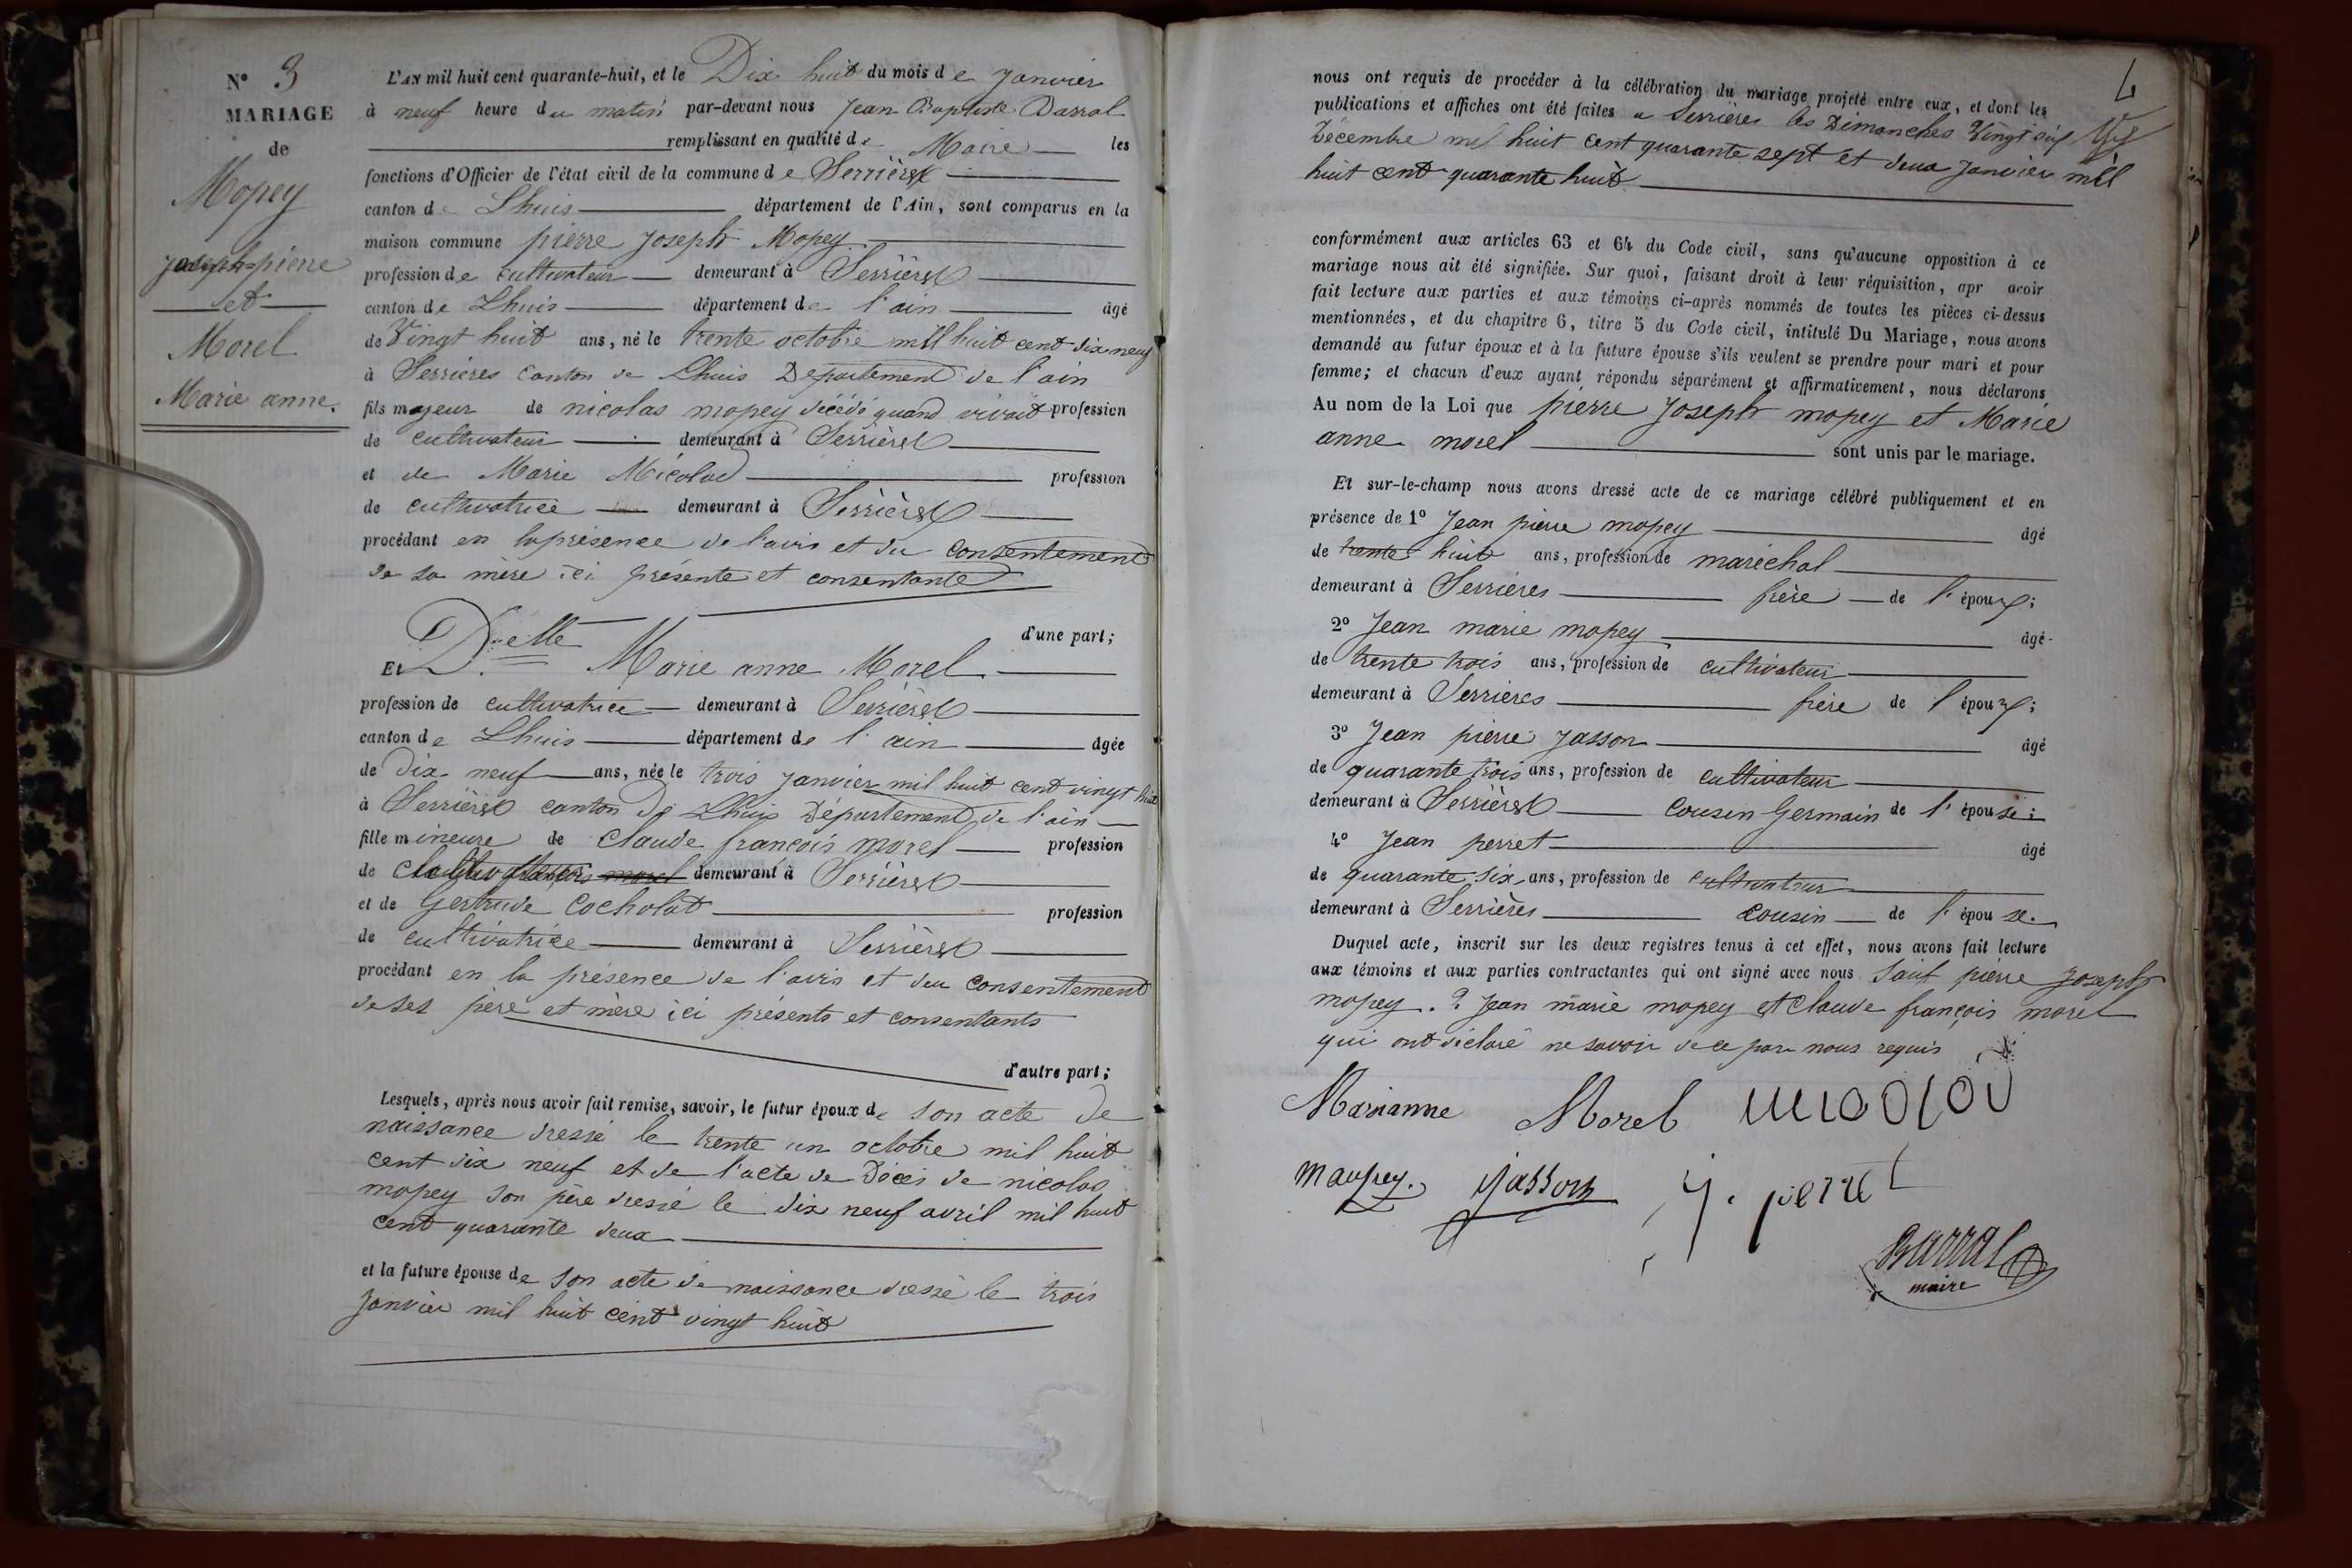 N° 3
MARIAGE
de
Mopey
joseph-pierre
et
Morel
Marie anne.
L'AN mil huit cent quarante-huit, et le Dix huit du mois de janvier
à neuf heure du matin par-devant nous Jean Baptiste Barral
remplissant en qualité de Maire les
fonctions d'Officier de l'état civil de la commune de Serrières
canton de Lhuis département de l'Ain, sont comparus en la
maison commune pierre joseph Mopey
profession de cultivateur demeurant à Serrières
canton de Lhuis département de l'ain âgé
de Vingt huit ans, né le trente octobre mil huit cent dix neuf
à Serrières canton de Lhuis Département de l'ain
fils majeur de nicolas mopey décédé quand vivait profession
de cultivateur demeurant à Serrières
et de Marie Micolod profession
de cultivatrice demeurant à Serrières
procédant en la présence de l'avis et du consentement
de sa mère ici présente et consentante
d'une part;
Et Delle Marie anne Morel
profession de cultivatrice demeurant à Serrières
canton de Lhuis département de l'ain âgée
de Dix neuf ans, née le trois janvier mil huit cent vingt huit
à Serrières canton de Lhuis Département de l'ain
fille mineure de Claude françois morel profession
de demeurant à Serrières
et de Gertrude Cocholat profession
de cultivatrice demeurant à Serrières
procédant en la présence de l'avis et du consentement
de ses père et mère ici présents et consentants
d'autre part;
Lesquels, après nous avoir fait remise, savoir, le futur époux de son acte de
naissance dressé le trente un octobre mil huit
cent dix neuf et de l'acte de Décès de nicolas
mopey son père dressé le dix neuf avril mil huit
cent quarante deux
et la future épouse de son acte de naissance dressé le trois
janvier mil huit cent vingt huit
4
nous ont requis de procéder à la célébration du mariage projeté entre eux, et dont les
publications et affiches ont été faites a Serrières les Dimanches Vingt six
Décembre mil huit cent quarante sept et deux janvier mil
huit cent quarante huit
conformément aux articles 63 et 64 du Code civil, sans qu'aucune opposition à ce
mariage nous ait été signifiée. Sur quoi, faisant droit à leur réquisition, apr avoir
fait lecture aux parties et aux témoins ci-après nommés de toutes les pièces ci-dessus
mentionnées, et du chapitre 6, titre 5 du Code civil, intitulé Du Mariage, nous avons
demandé au futur époux et à la future épouse s'ils veulent se prendre pour mari et pour
femme; et chacun d'eux ayant répondu séparément et affirmativement, nous déclarons
Au nom de la Loi que pierre joseph mopey et Marie
anne morel sont unis par le mariage.
Et sur-le-champ nous avons dressé acte de ce mariage célébré publiquement et en
présence de 1° Jean pierre mopey âgé
de trente huit ans, profession de maréchal
demeurant à Serrières frère de l'époux;
2° Jean marie mopey âgé
de trente trois ans, profession de cultivateur
demeurant à Serrières frère de l'époux;
3° Jean pierre Jasson âgé
de quarante trois ans, profession de cultivateur
demeurant à Serrières Cousin Germain de l'épouse;
4° Jean perret âgé
de quarante six ans, profession de cultivateur
demeurant à Serrières cousin de l'épouse.
Duquel acte, inscrit sur les deux registres tenus à cet effet, nous avons fait lecture
aux témoins et aux parties contractantes qui ont signé avec nous Sauf pierre joseph
mopey. Jean marie mopey et Claude françois morel
qui ont déclaré ne savoir de ce par nous requis
Marianne Morel
maupey. Jasson j. perret
Barral
maire